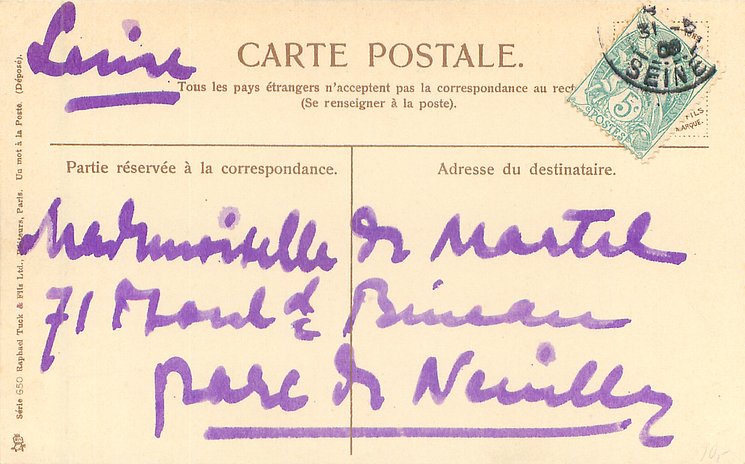 Louise
CARTE POSTALE.
Tous les pays étrangers n'acceptent pas la correspondance au rect
(Se renseigner à la poste).
Partie réservée à la correspondance.
Adresse du destinataire.
Mademoiselle de Martel
71 Boul d Bineau
parc de Neuilly
Série 650 Raphael Tuck & Fils Ltd., Editeurs, Paris. Un mot à la Poste. (Déposé).
31
SEINE
5c
POSTES
FILS
MARQUE.